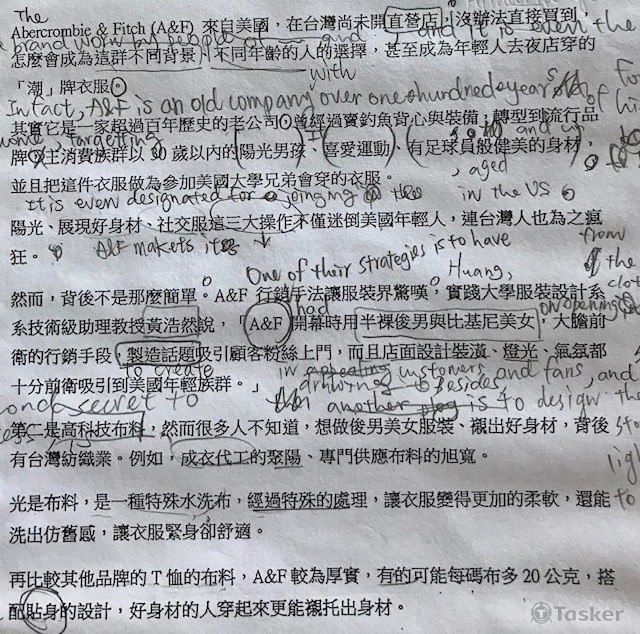 The
Abercrombie & Fitch (A&F) 來自美國，在台灣尚未開直營店，沒辦法直接買到，
a brand worn by people of and , and it is even the
怎麼會成為這群不同背景、不同年齡的人的選擇，甚至成為年輕人去夜店穿的
「潮」牌衣服。
with
In fact, A&F is an old company over one hundred years of hi
其實它是一家超過百年歷史的老公司。曾經過賣釣魚背心與裝備；轉型到流行品
targeting and up
牌，主消費族群以 30 歲以內的陽光男孩、喜愛運動、有足球員般健美的身材，
, aged
並且把這件衣服做為參加美國大學兄弟會穿的衣服。
It is even designated for joinging the in the US
陽光、展現好身材、社交服這三大操作不僅迷倒美國年輕人，連台灣人也為之瘋
狂。 A&F makets its from
One of their strategies is to have Huang, the
然而，背後不是那麼簡單。A&F 行銷手法讓服裝界驚嘆，實踐大學服裝設計系
had on opening
系技術級助理教授黃浩然說，「A&F 開幕時用半裸後男與比基尼美女，大膽前
衛的行銷手段，製造話題吸引顧客粉絲上門，而且店面設計裝潢、燈光、氣氛都
to create in appealing customers and fans, and
十分前衛吸引到美國年輕族群。」 Besides,
ond secret to another is to design the
第二是高科技布料，然而很多人不知道，想做後男美女服裝、襯出好身材，背後
有台灣紡織業。例如，成衣代工的聚陽、專門供應布料的旭寬。
光是布料，是一種特殊水洗布，經過特殊的處理，讓衣服變得更加的柔軟，還能
洗出仿舊感，讓衣服緊身卻舒適。
再比較其他品牌的 T 恤的布料，A&F 較為厚實，有的可能每碼布多 20 公克，搭
配貼身的設計，好身材的人穿起來更能襯托出身材。
Tasker